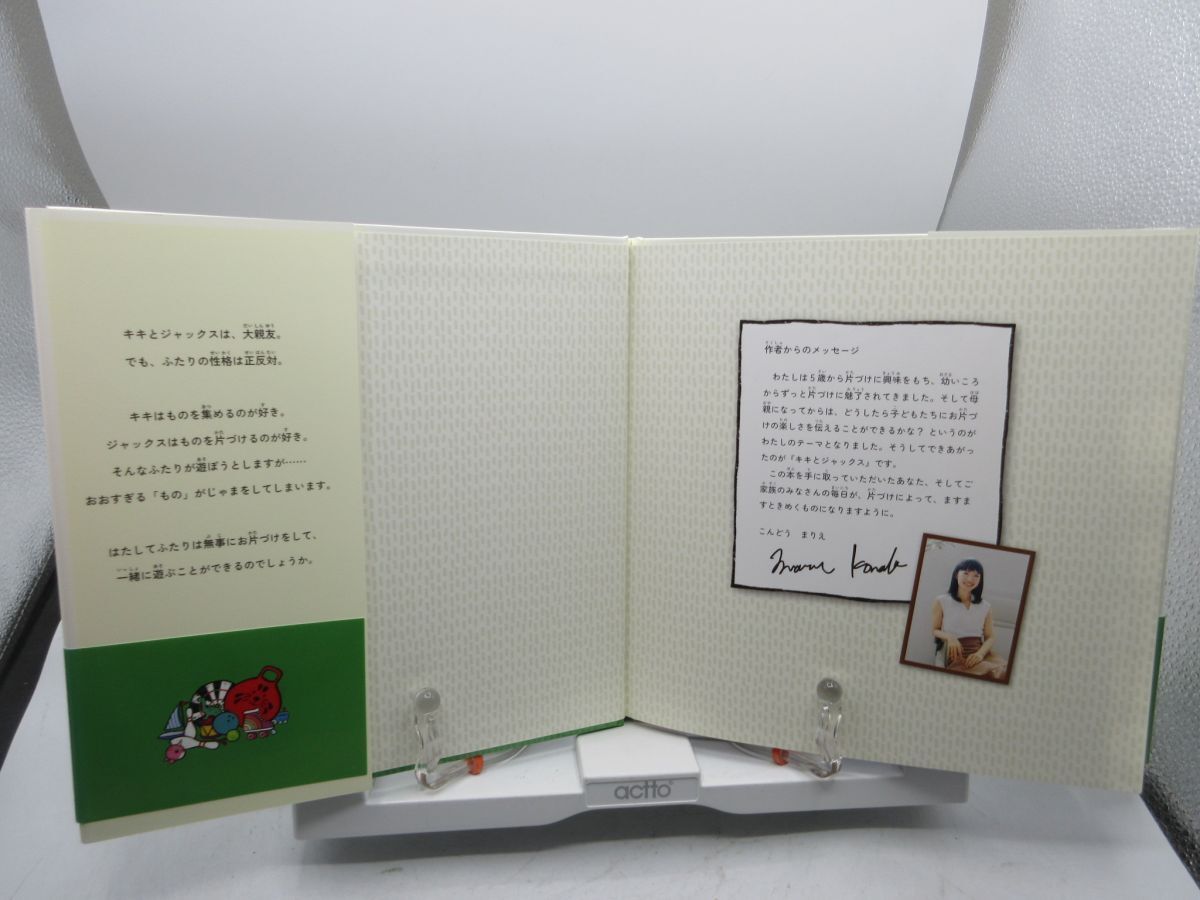 キキとジャックスは、大親友。
でも、ふたりの性格は正反対。
キキはものを集めるのが好き。
ジャックスはものを片づけるのが好き。
そんなふたりが遊ぼうとしますが……
おおすぎる「もの」がじゃまをしてしまいます。
はたしてふたりは無事にお片づけをして、
一緒に遊ぶことができるのでしょうか。
作者からのメッセージ
わたしは5歳から片づけに興味をもち、幼いころ
からずっと片づけに魅了されてきました。そして母
親になってからは、どうしたら子どもたちにお片づ
けの楽しさを伝えることができるかな？というのが
わたしのテーマとなりました。そうしてできあがっ
たのが『キキとジャックス』です。
この本を手に取っていただいたあなた、そしてご
家族のみなさんの毎日が、片づけによって、ますま
すときめくものになりますように。
こんどう　まりえ
Marie Kondo
actto